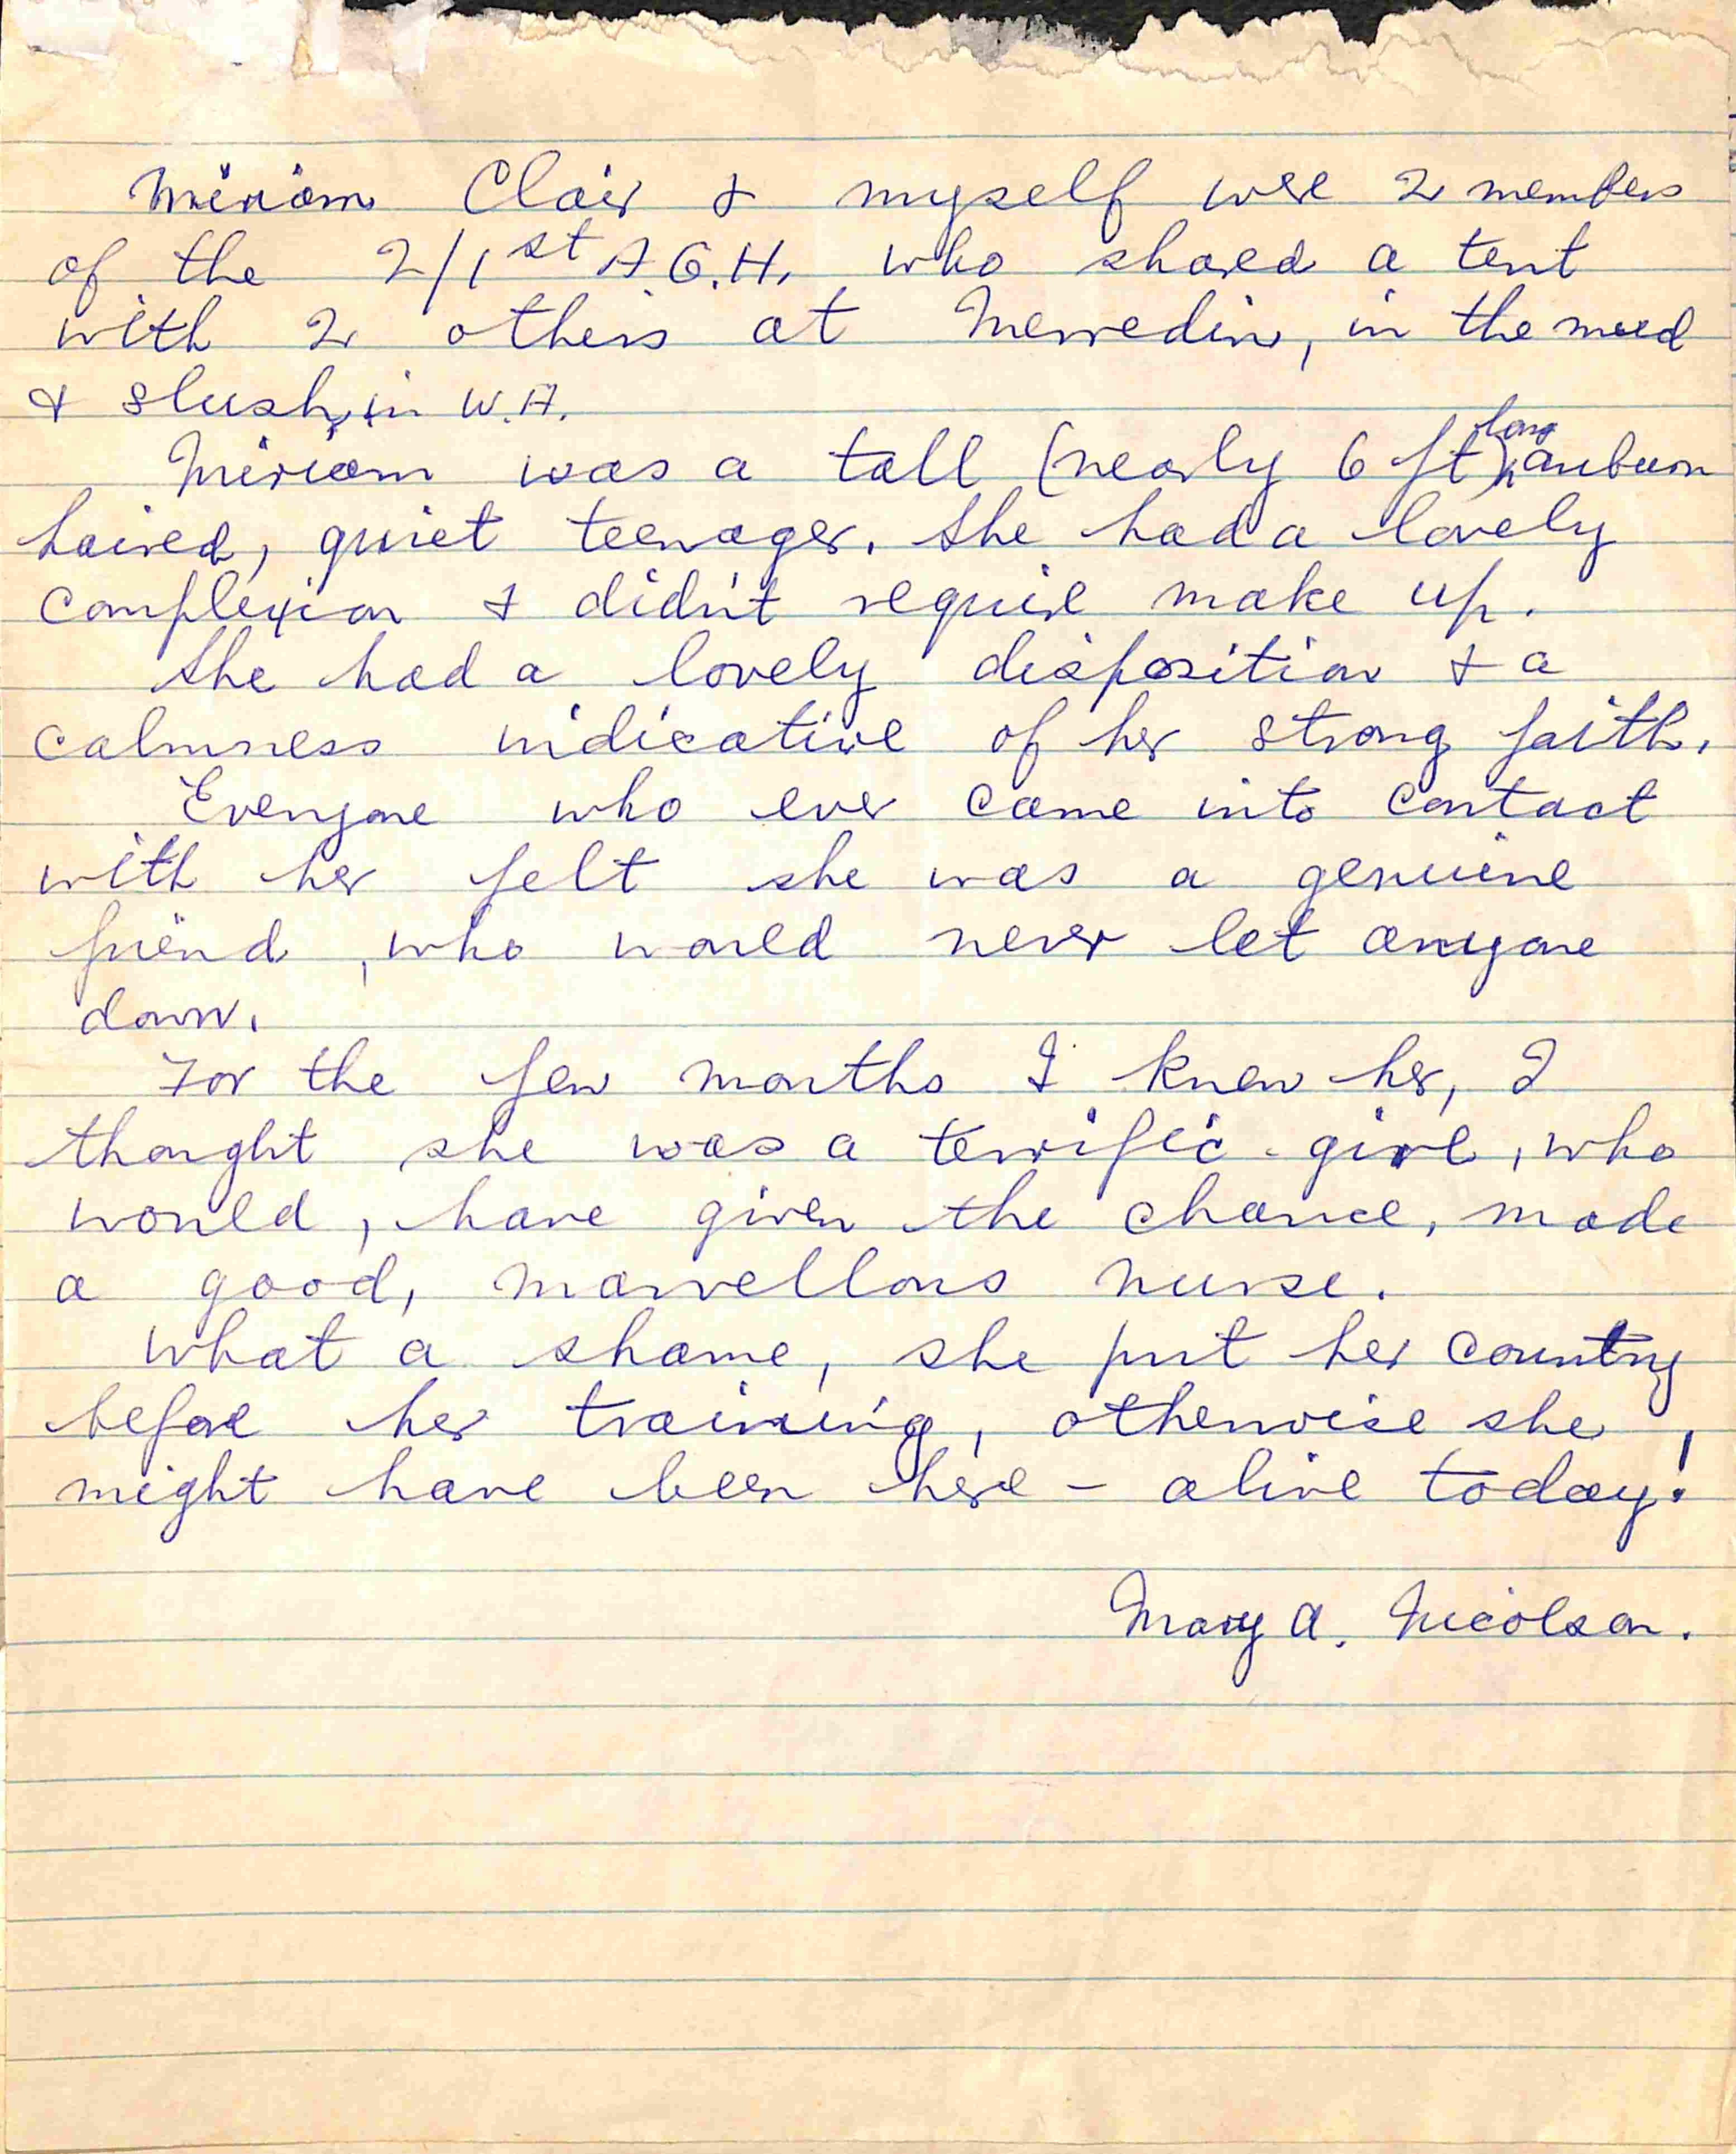 Miriam Clair & myself were 2 members
of the 2/1st A.G.H. who shared a tent
with 2 others at Merredin, in the mud
& slush, in W.A.
Miriam was a tall (nearly 6 ft) long auburn
haired, quiet teenager. She had a lovely
complexion & didn't require make up.
She had a lovely disposition & a
calmness indicative of her strong faith.
Everyone who ever came into contact
with her felt she was a genuine
friend, who would never let anyone
down.
For the few months I knew her, I
thought she was a terrific girl, who
would, have given the chance, made
a good, marvellous nurse.
What a shame, she put her country
before her training, otherwise she
might have been here - alive today!
Mary A. Nicolson.